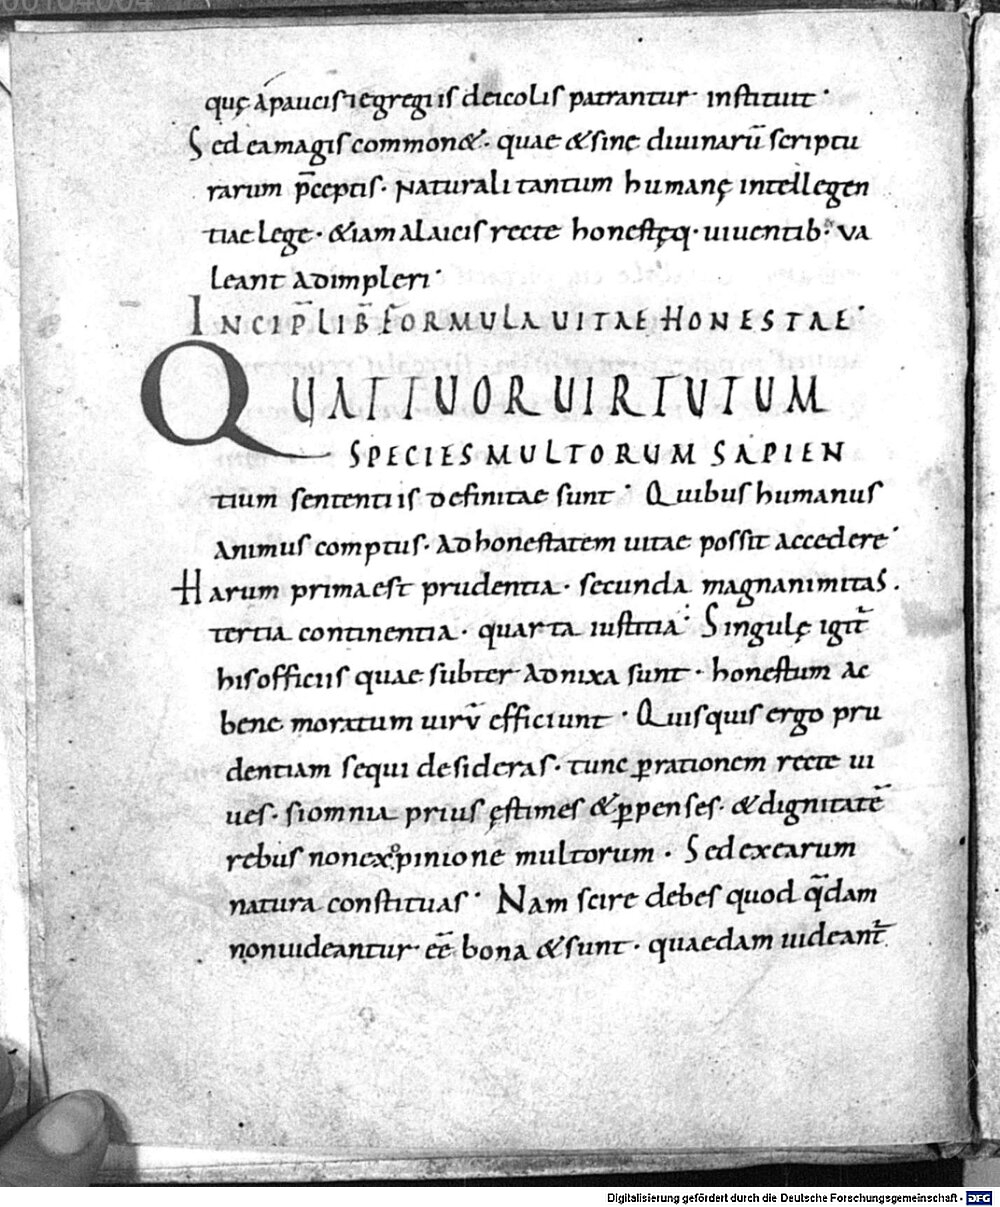 quę a paucis & egregiis deicolis patrantur instituit·
Sed ea magis common&· quae & sine diuinarū scriptu
rarum p̄ceptis· naturali tantum humanę intellegen
tiae lege· &iam a laicis recte honestęq· uiuentib: va
leant adimpleri·
INCIP̄ LIB̄ FORMULA UITAE HONESTAE·
QUATTUOR UIRTUTUM
SPECIES MULTORUM SAPIEN
tium sententiis definitae sunt· Quibus humanus
animus comptus· ad honestatem uitae possit accedere·
Harum prima est prudentia· secunda magnanimitas.
tertia continentia· quarta iustitia· Singulę igit̄
his officiis quae subter adnixa sunt· honestum ac
bene moratum uirū efficiunt· Quisquis ergo pru
dentiam sequi desideras· tunc ꝑ rationem recte ui
ues· si omnia prius ęstimes & ꝑpenses· & dignitatē
rebus non ex opinione multorum· Sed ex earum
natura constituas· Nam scire debes quod q̄dam
non uideantur· eē bona & sunt· quaedam uideant̄
Digitalisierung gefördert durch die Deutsche Forschungsgemeinschaft - DFG